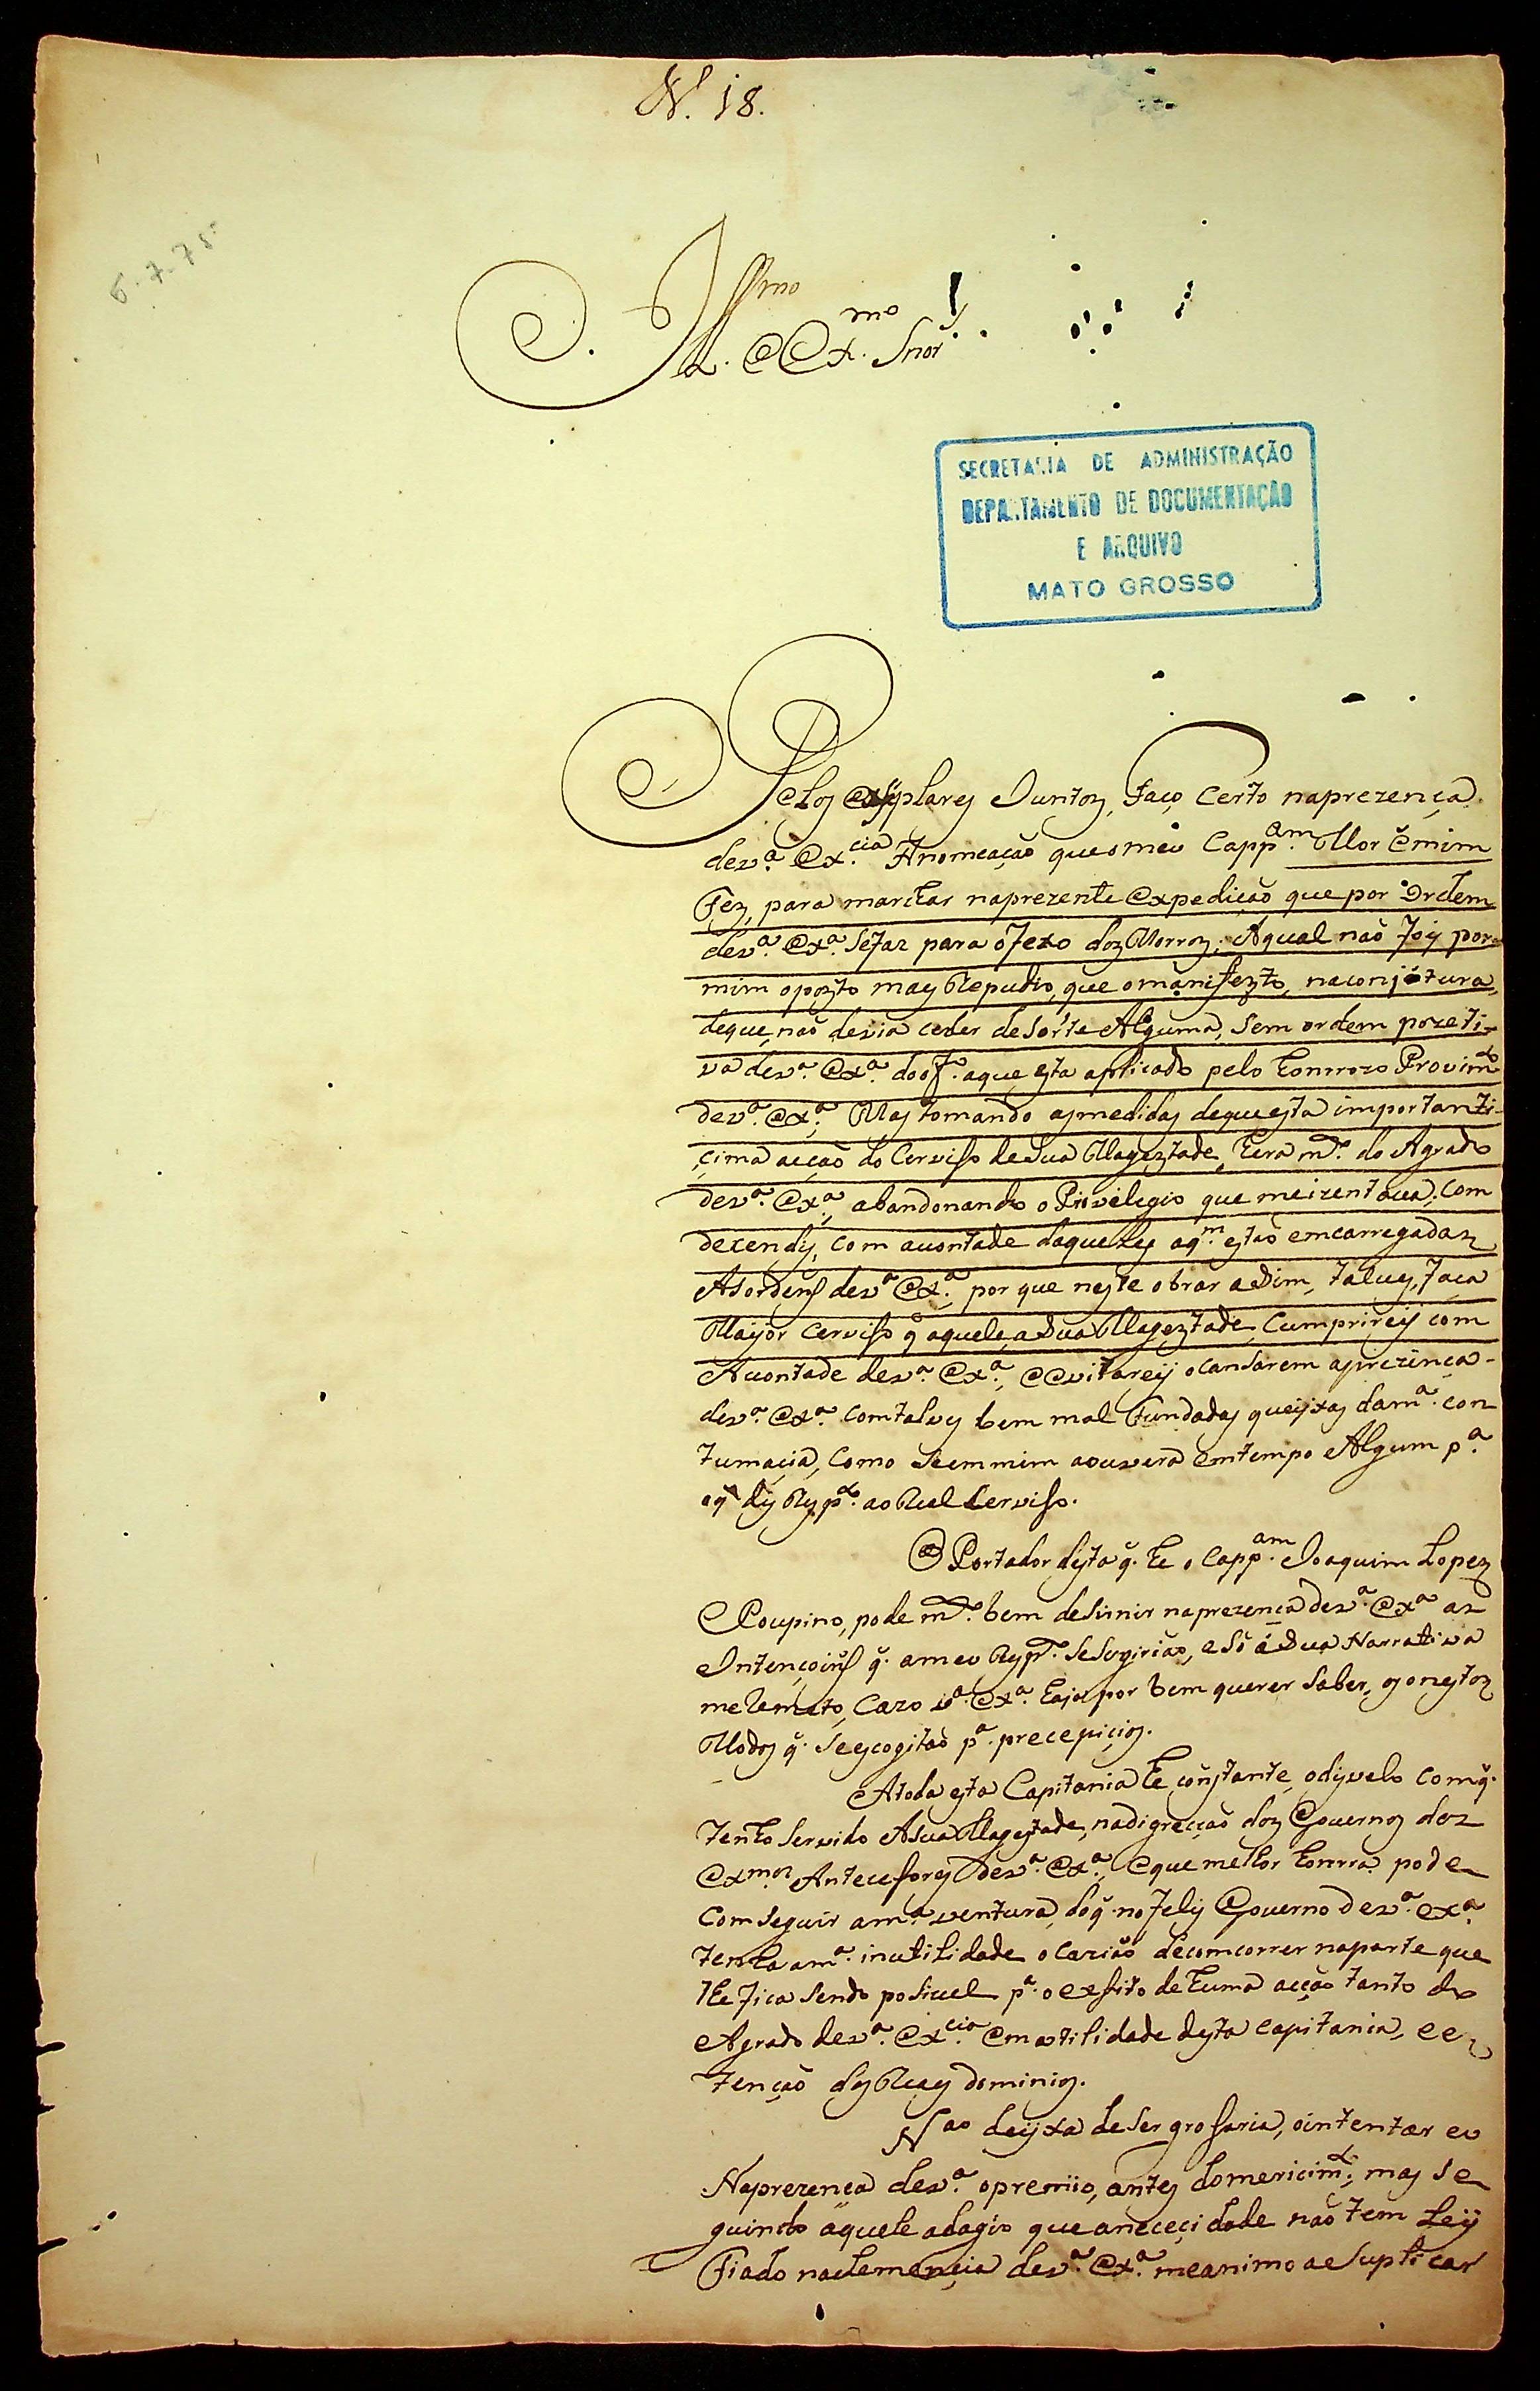 N. 18.
6.7.75
Ill.mo e Ex.mo Snor'
SECRETARIA DE ADMINISTRAÇÃO
DEPARTAMENTO DE DOCUMENTAÇÃO
E ARQUIVO
MATO GROSSO
Pelos Juntos, faço certo naprezença
dev.a Ex.cia Anomeação queomeu Capp.am Mor emim
Fez, para marchar naprezente expedição que por Ordem
dev.a Ex.a Sefaz para ofexo dos Morros; Aqual naõ foy por
mim opozto mas Repudio, que omanifezto, naconjutura,
deque, naõ devia ceder desorte Alguma, Sem ordem pozeti-
va dev.a Ex.a doof.o aque esta aplicado pelo honrrozo Provim.to
dev.a Ex.a; Mas tomando asmedidas dequeesta importanti-
çima acçaõ do Cerviso deSua Magestade, hera m.to do Agrado
dev.a Ex.a, abandonando o Privilegio que meizentava; Com
decendy, com avontade daqueles aq.m estaõ emcarregadas
Asordens dev.a Ex.a; por que neste obrar asim, talves, faca
Mayor Cerviso q aquele, aSua Magestade, Cumprirey com
Avontade dev.a Ex.a, eevitarey oCansarem aprezença
dev.a Ex.a comtalves bem mal Fundadas queyxas dam.a con
tumaçia, Como Seemmim aouvera emtempo Algum p.a
oq dis Resp.to ao Real Cerviso.
O Portador desta q. he o Capp.am Joaquim Lopez
Poupino, pode m.to bem desimir naprezença dev.a Ex.a as
Intençoins q. ameu Resp.to Sesugiriaõ, e Só á Sua Narrativa
me Remeto, Cazo v.a Ex.a haja por bem querer Saber, os onestos
Modos q. Seescogitaõ p.a precepicios.
Atoda esta Capitania he constante, odisvelo comq.
tenho Servido ASua Magestade, nadigreçaõ dos Governos dos
Ex.mos Antecesores dev.a Ex.a, eque melhor honrra pode
Comseguir am.a ventura, doq. no Felis Governo dev.a Ex.a
tenha am.a inutilidade ocazião decomcorrer naparte que
lhe fica Sendo posivel p.a o exsito de huma acçaõ tanto do
Agrado dev.a Ex.cia emutilidade desta capitania, e ex
tençaõ dos Reays dominios.
Naõ deyxa deSer grosaria, ointentar eu
Naprezença dev.a opremio, antes domericim.to; mas Se
guindo aquele adagio que aneceçidade naõ tem Ley
Fiado naclemençia dev.a Ex.a meanimo aesuplicar